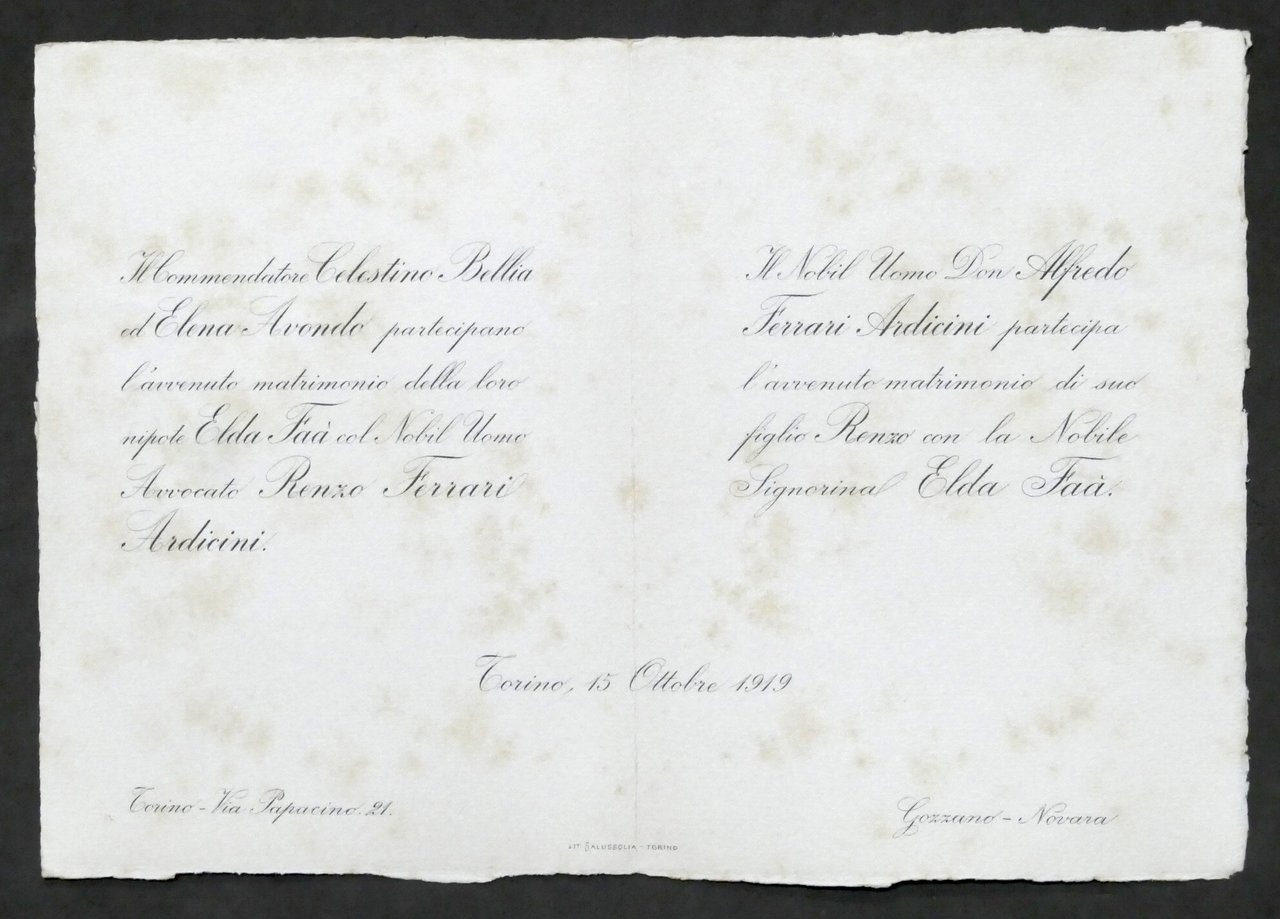 Il Commendatore Celestino Bellia
ed Elena Avondo partecipano
l'avvenuto matrimonio della loro
nipote Elda Faà col Nobil Uomo
Avvocato Renzo Ferrari
Ardicini.
Il Nobil Uomo Don Alfredo
Ferrari Ardicini partecipa
l'avvenuto matrimonio di suo
figlio Renzo con la Nobile
Signorina Elda Faà.
Torino, 15 Ottobre 1919
Torino - Via Papacino. 21.
Gozzano - Novara
LIT SALUSSOLIA - TORINO